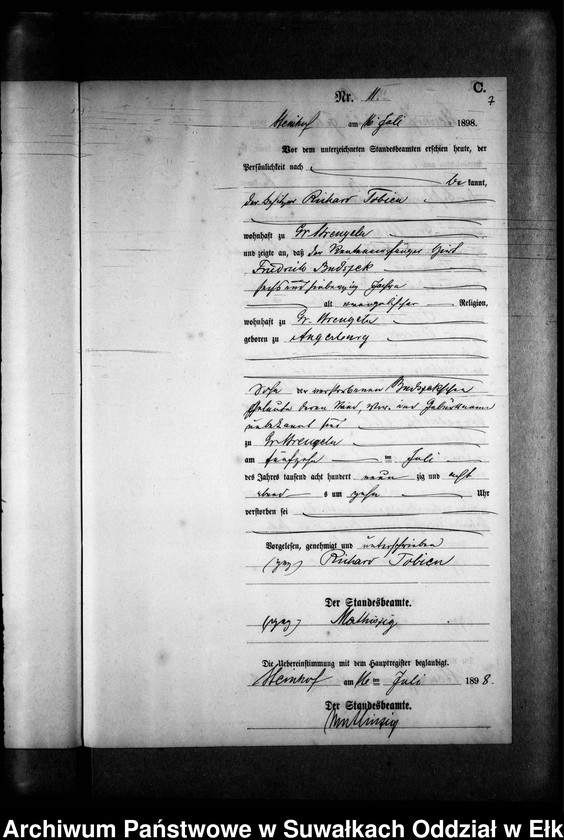 C.
7
Nr. 11.
Steinhof am 16 Juli 1898.
Vor dem unterzeichneten Standesbeamten erschien heute, der
Persönlichkeit nach
be kannt,
der Besitzer Richard Tobien
wohnhaft zu Gr Strengeln
und zeigte an, daß der Rentenempfänger Wirt
Friedrich Budszek
sechs und siebenzig Jahre
alt evangelischer Religion,
wohnhaft zu Gr. Strengeln
geboren zu Angerburg
Sohn der verstorbenen Budszekschen
Eheleute deren Stand, Vor- und Geburtsname
unbekannt sind
zu Gr. Strengeln
am fünfzehn ten Juli
des Jahres tausend acht hundert neun zig und acht
abend s um zehn Uhr
verstorben sei
Vorgelesen, genehmigt und unterschrieben
(gez) Richard Tobien
Der Standesbeamte.
(gez)
Die Uebereinstimmung mit dem Hauptregister beglaubigt.
Steinhof am 16 ten Juli 1898.
Der Standesbeamte.
Archiwum Państwowe w Suwałkach Oddział w Ełk